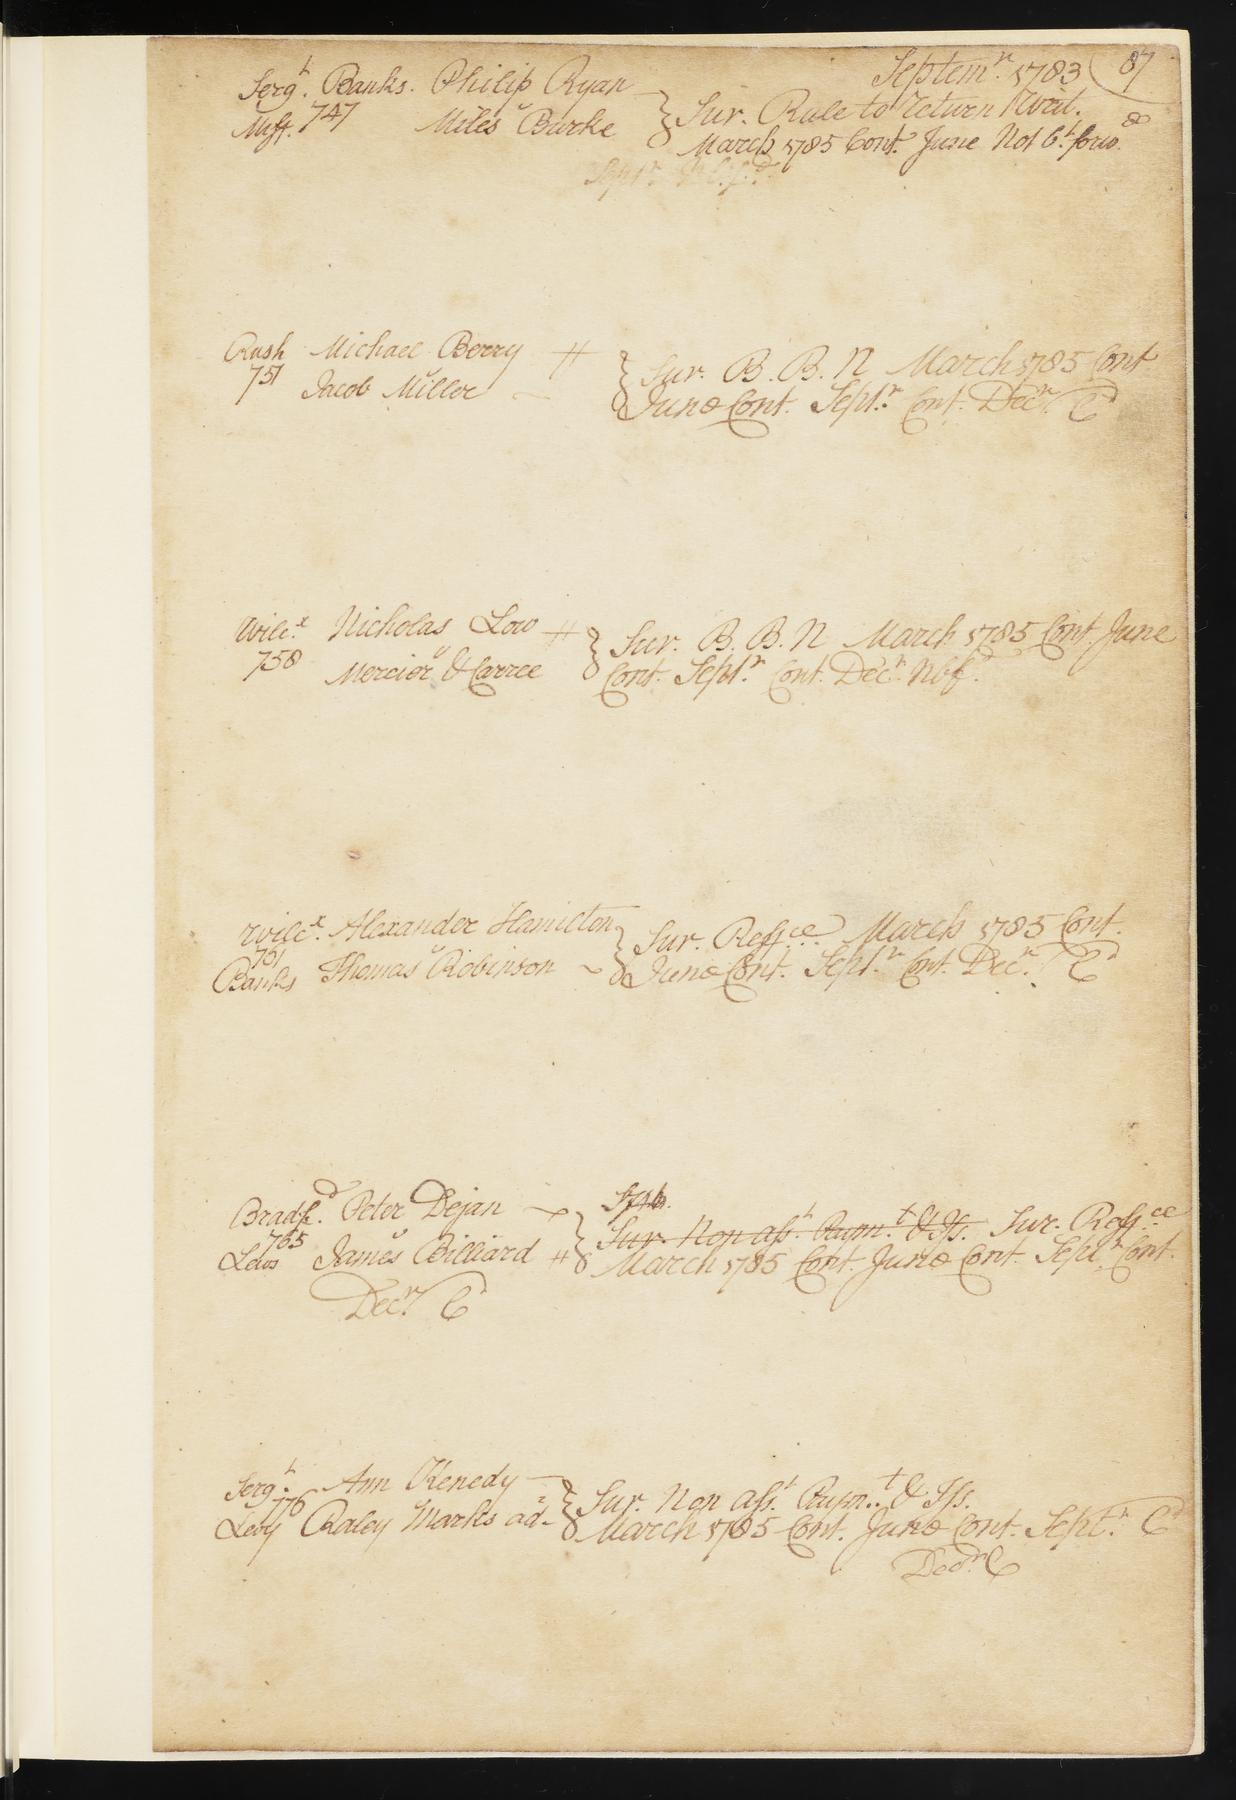 Septem.r 1783 87
Serg.t Banks. Philip Ryan
Miff. 747 v Miles Burke
Sur. Rule to return Writ.
March 1785 Cont. June Not b.t forw.d
Sept.r
Rush Michael Berry
751 v Jacob Miller
Sur. B. B. N March 1785 Cont
June Cont. Sept.r Cont. Dec.r C.d
Wilc.x Nicholas Low
758 v Mercier & Carree
Sur. B. B. N March 1785 Cont. June
Cont. Sept.r Cont. Dec.r Nbf.d
Wilc.x Alexander Hamilton
761 v
Banks Thomas Robinson
Sur. Reff.ce March 1785 Cont.
June Cont. Sept.r Cont. Dec.r C.d
Bradf.d Peter Dejan
765 v
Lews James Billiard
Sur. Non ass.t Paym.t & Iss. Sur. Reff.ce
March 1785 Cont. June Cont. Sept.r Cont.
Dec.r C.d
Serg.t Ann Kenedy
776
Levy Raley Marks ad.
Sur. Non ass.t Paym.t & Iss.
March 1785 Cont. June Cont. Sept.r C.d
Dec.r C